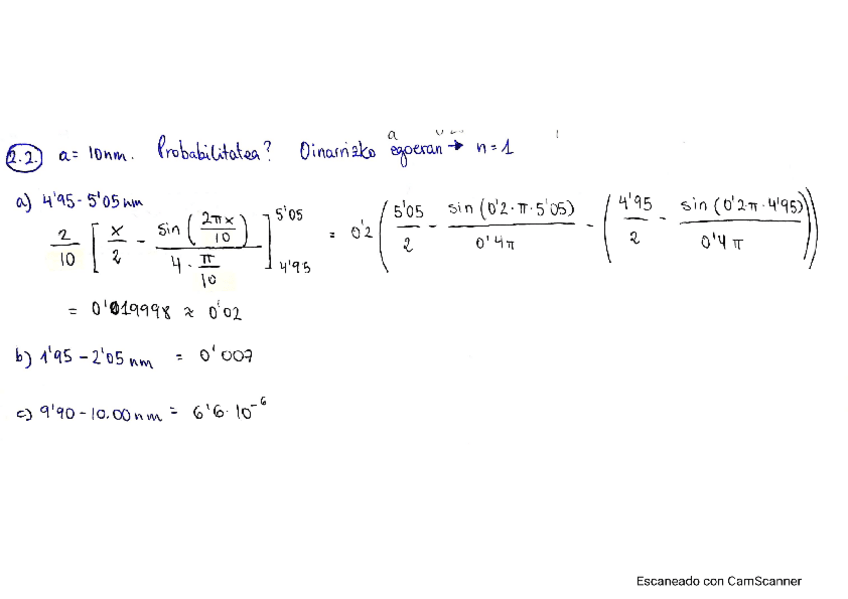 2.2. a = 10nm. Probabilitatea? Oinarrizko egoeran → n = 1
a) 4'95 - 5'05 nm
2/10 [ x/2 - sin(2πx/10) / (4 · π/10) ] 5'05 4'95 = 0'2 ( 5'05/2 - sin(0'2·π·5'05)/0'4π - ( 4'95/2 - sin(0'2π·4'95)/0'4π ))
= 0'019998 ≈ 0'02
b) 1'95 - 2'05 nm = 0'007
c) 9'90 - 10.00 nm = 6'6·10⁻⁶
Escaneado con CamScanner